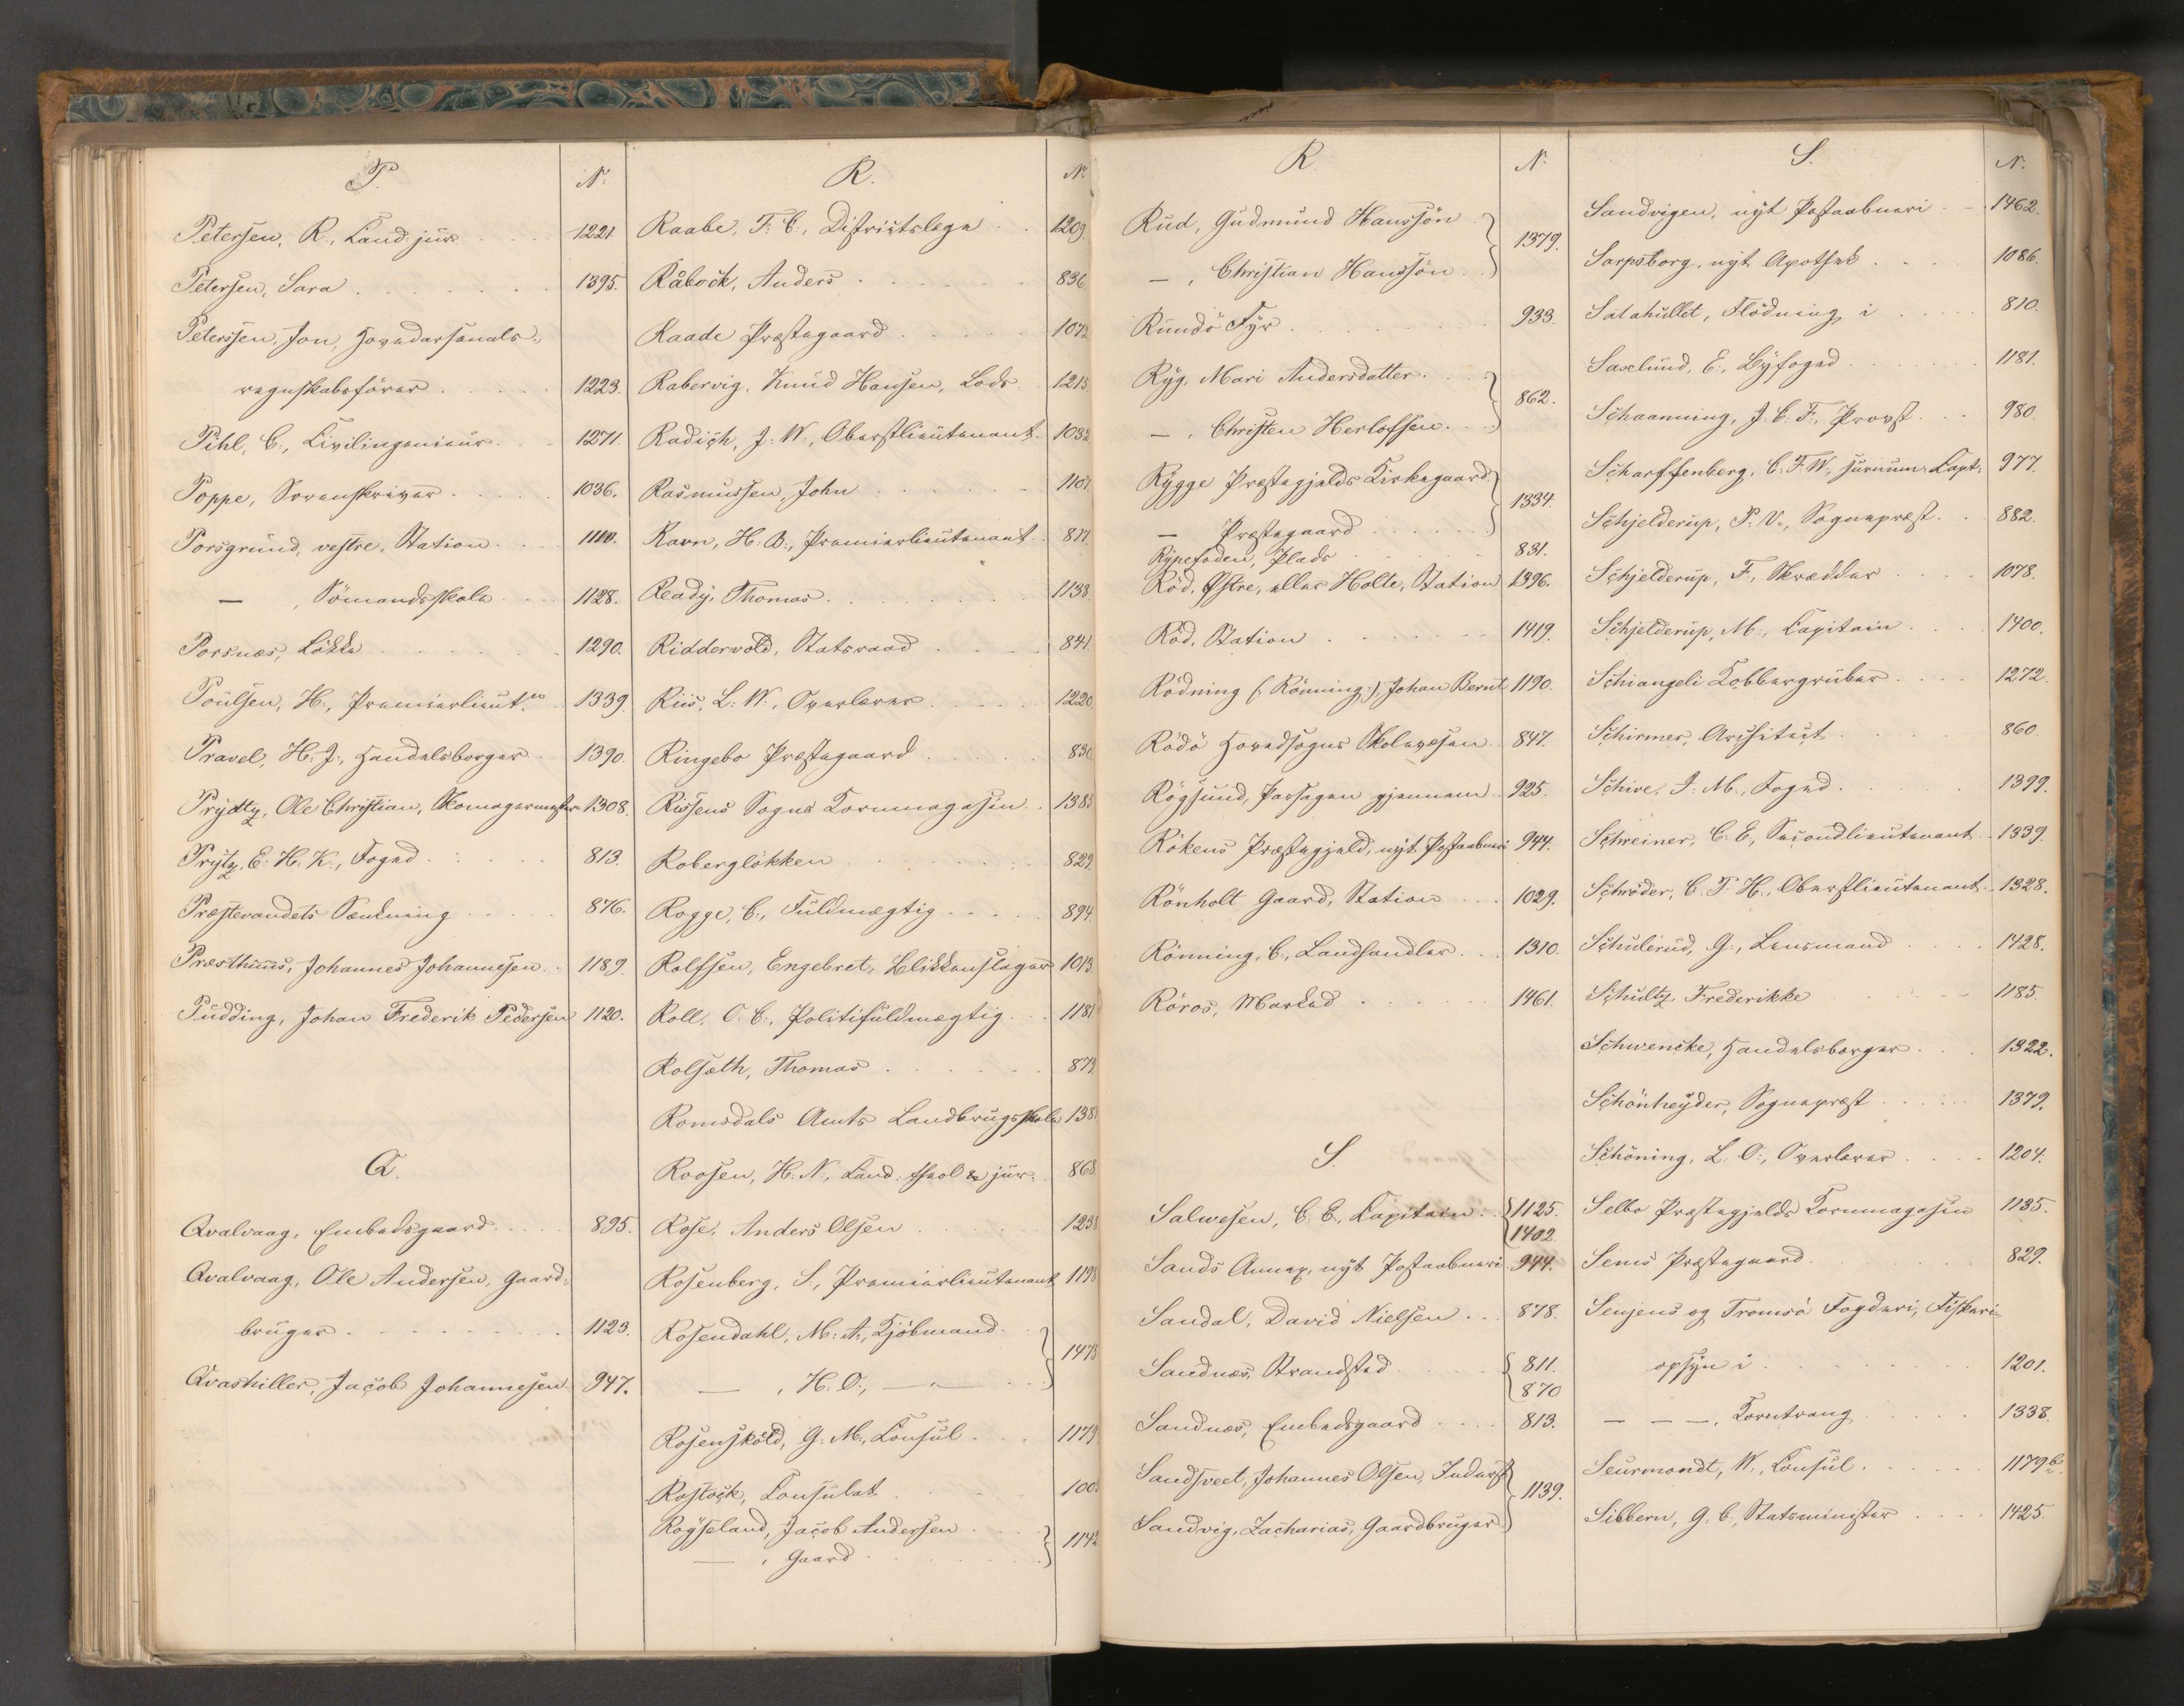 P.
N:
Petersen, R., Cand. jur. 1221
Petersen, Sara 1395.
Peterssen, Jon, Hovedarsenals-
regnskabsförer 1223.
Pihl, C., Civilingenieur 1271.
Poppe, Sorenskriver 1036.
Porsgrund, vestre, Station 1110.
— , Sömandsskole 1128.
Porsnæs, Lökke 1290.
Poulsen, H., Premierlieut. 1339.
Pravel, H. J., Handelsborger 1390.
Prydtz, Ole Christian, Skomagermester 1308.
Prytz, E. H. K., Foged 813.
Præstevandets Sænkning 876.
Præsthuus, Johannes Johannesen 1189.
Pudding, Johan Frederik Pedersen 1120.
Q.
Qvalvaag, Embedsgaard 895.
Qvalvaag, Ole Andersen, Gaard-
bruger 1123.
Qvashiller, Jacob Johannesen 947.
R.
N:
Raabe, F. C., Districtslæge 1209.
Råbock, Anders 836
Raade Præstegaard
Rabervig, Knud Hansen, Lods
Radich, J. W., Oberstlieutenant 1032
Rasmussen, John 1107
Ravn, H. B., Premierlieutenant
Ready, Thomas 1138
Riddervold, Statsraad 841.
Riis, L. W., Overlærer 1220
Ringebo Præstegaard 830
Rissens Sogns Kornmagasin
Roberglökken 829
Rogge, C., Fuldmægtig 894
Rolfsen, Engebret, Blikkenslager 1013
Roll, O. C., Politifuldmægtig 1181
Rolseth, Thomas 879.
Romsdals Amts Landbrugsskole
Roosen, H. N., Cand. theol & jur. 868
Rose, Anders Olsen
Rosenberg, S., Premierlieutenant 1198
Rosendahl, M. A., Kjöbmand
— , H. O., — 1473
Rosensköld, G. M., Consul 1179
Rostock, Consulat
Röyseland, Jacob Andersen
— , Gaard 1142
R.
N.
Rud, Gudmund Hanssön
— , Christian Hanssön 1379.
Rundö Fyr 933.
Ryg, Mari Andersdatter
— , Christen Herlofsen 862.
Rygge Præstegjelds Kirkegaard
— Præstegaard 1334.
Rypefoden, Plads 831.
Röd, Østre, eller Holte, Station 1396.
Röd, Station 1419.
Rödning (: Rönning :), Johan Bernt 1190.
Rödö Hovedsogns Skolevæsen 847.
Rögsund, Passagen gjennem 925.
Rökens Præstegjeld, nyt Postaabneri 944.
Rönholt Gaard, Station 1029.
Rönning, C., Landhandler 1310.
Röros, Marked 1461.
S.
Salvesen, C. E., Capitain 1125.
1402
Sands Annex, nyt Postaabneri 944.
Sandal, David Nielsen 878.
Sandnæs, Strandsted 811.
870
Sandnæs, Embedsgaard 813.
Sandsveet, Johannes Olsen, Inderst
Sandvig, Zacharias, Gaardbruger 1139.
S.
N.
Sandvigen, nyt Postaabneri 1462.
Sarpsborg, nyt Apothek 1086.
Satahullet, Flödning i 810.
Saxlund, E., Byfoged 1181.
Schaanning, J. C. F., Provst 980
Scharffenberg, C. F. W., surnum. Capt: 977.
Schjelderup, P. V., Sognepræst 882.
Schjelderup, F., Skrædder 1078.
Schjelderup, M., Capitain 1400.
Schiangeli Kobbergruber 1272.
Schirmer, Architect 860
Schive, J. M., Foged 1399.
Schreiner, C. E., Secondlieutenant 1339.
Schröder, C. F. H., Oberstlieutenant 1328.
Schulerud, G., Lensmand 1428.
Schultz, Frederikke 1185
Schwencke, Handelsborger 1322.
Schönheyder, Sognepræst 1379.
Schöning, L. O., Overlærer 1204.
Selbo Præstegjelds Kornmagasin 1135.
Sems Præstegaard 829.
Senjens og Tromsö Fogderi, Fiskeri-
opsyn i 1201.
— — —, Korntrang 1338.
Seurmondt, W., Consul 1179 b.
Sibbern, G. C., Statsminister 1425.